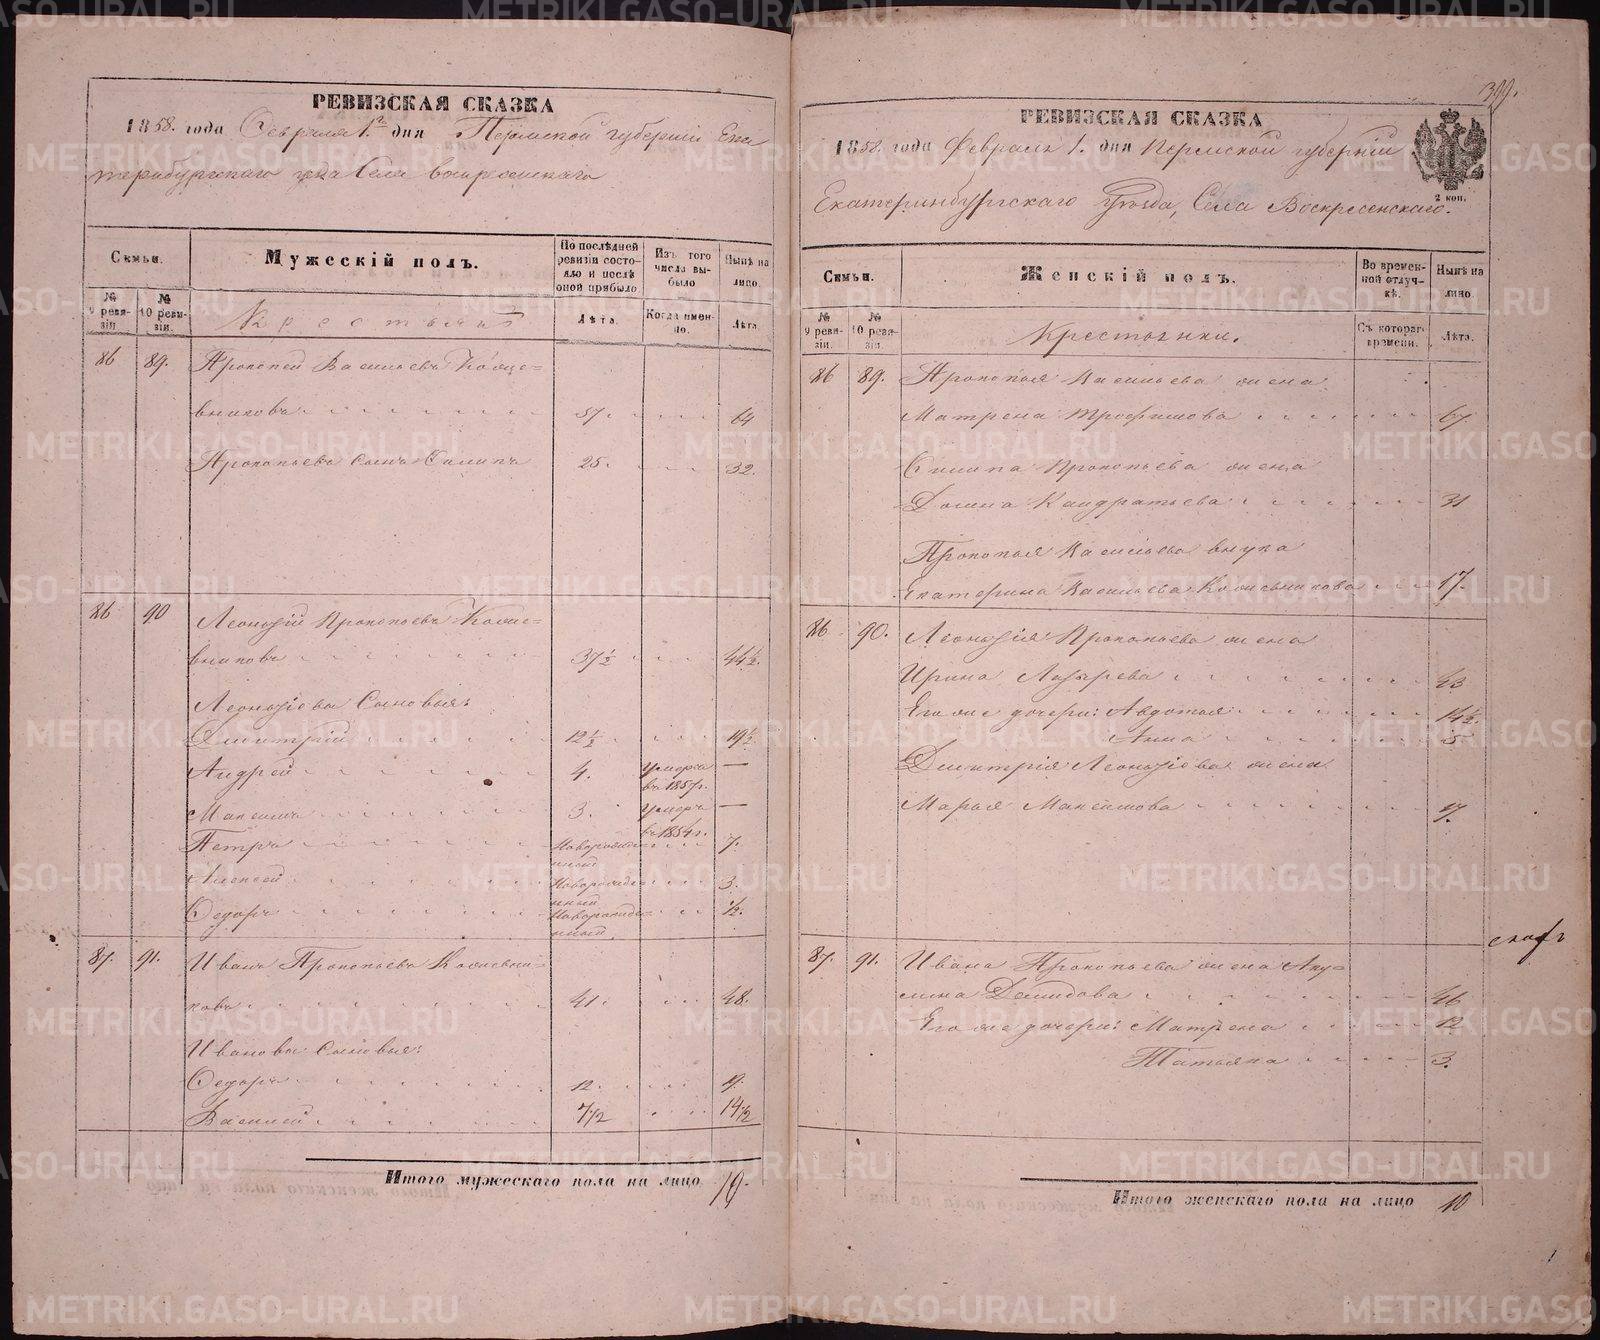 РЕВИЗСКАЯ СКАЗКА
1858. года Февраля 1го дня Пермской губернии Ека
теринбургскаго уезда Села Воскресенскаго
Семьи.
Мужескій полъ.
По послѣдней ревизіи состояло и послѣ оной прибыло.
Изъ того числа выбыло
Нынѣ на лицо.
№ 9 ревизіи.
№ 10 ревизіи.
Крестьяне
Лѣта.
Когда именно.
Лѣта.
86 89. Прокопей Васильевъ Кожевниковъ 57. 64
Прокопьевъ сынъ Филипъ 25. 32.
86 90 Леонтій Прокопьевъ Кожевниковъ 37½ 44½.
Леонтіевы Сыновья:
Дмитрій 12½ 19½
Андрей 4. умеръ въ 1857г. —
Максимъ 3. умеръ въ 1854г. —
Петръ Новорожденный 7.
Алексей Новорожденный 3.
Федоръ Новорожденный ½.
87. 91. Иванъ Прокопьевъ Кожевниковъ 41. 48.
Ивановы сыновья:
Федоръ 12. 19.
Василей 7½ 14½
Итого мужескаго пола на лицо 10.
399.
РЕВИЗСКАЯ СКАЗКА
1858. года Февраля 1. дня Пермской губерніи
Екатеринбургскаго уѣзда, Села Воскресенскаго.
2 коп.
Семьи.
Женскій полъ.
Во временной отлучкѣ.
Нынѣ на лицо.
№ 9 ревизіи.
№ 10 ревизіи.
Крестьянки.
Съ котораго времени.
Лѣта.
86 89. Прокопья Васильева жена
Матрена Трофимова 67.
Филипа Прокопьева жена
Домна Кандратьева 31
Прокопья Васильева внука
Екатерина Васильева Кожевникова 17.
86 90. Леонтія Прокопьева жена
Ирина Лазарева 43
Его же дочери: Авдотья 14½.
Анна 5
Дмитрія Леонтіева жена
Марья Максимова 17.
87. 91. Ивана Прокопьева жена Аку-
лина Демидова 46
Его же дочери: Матрена 12
Татьяна 3.
Итого женскаго пола на лицо 10
METRIKI.GASO-URAL.RU